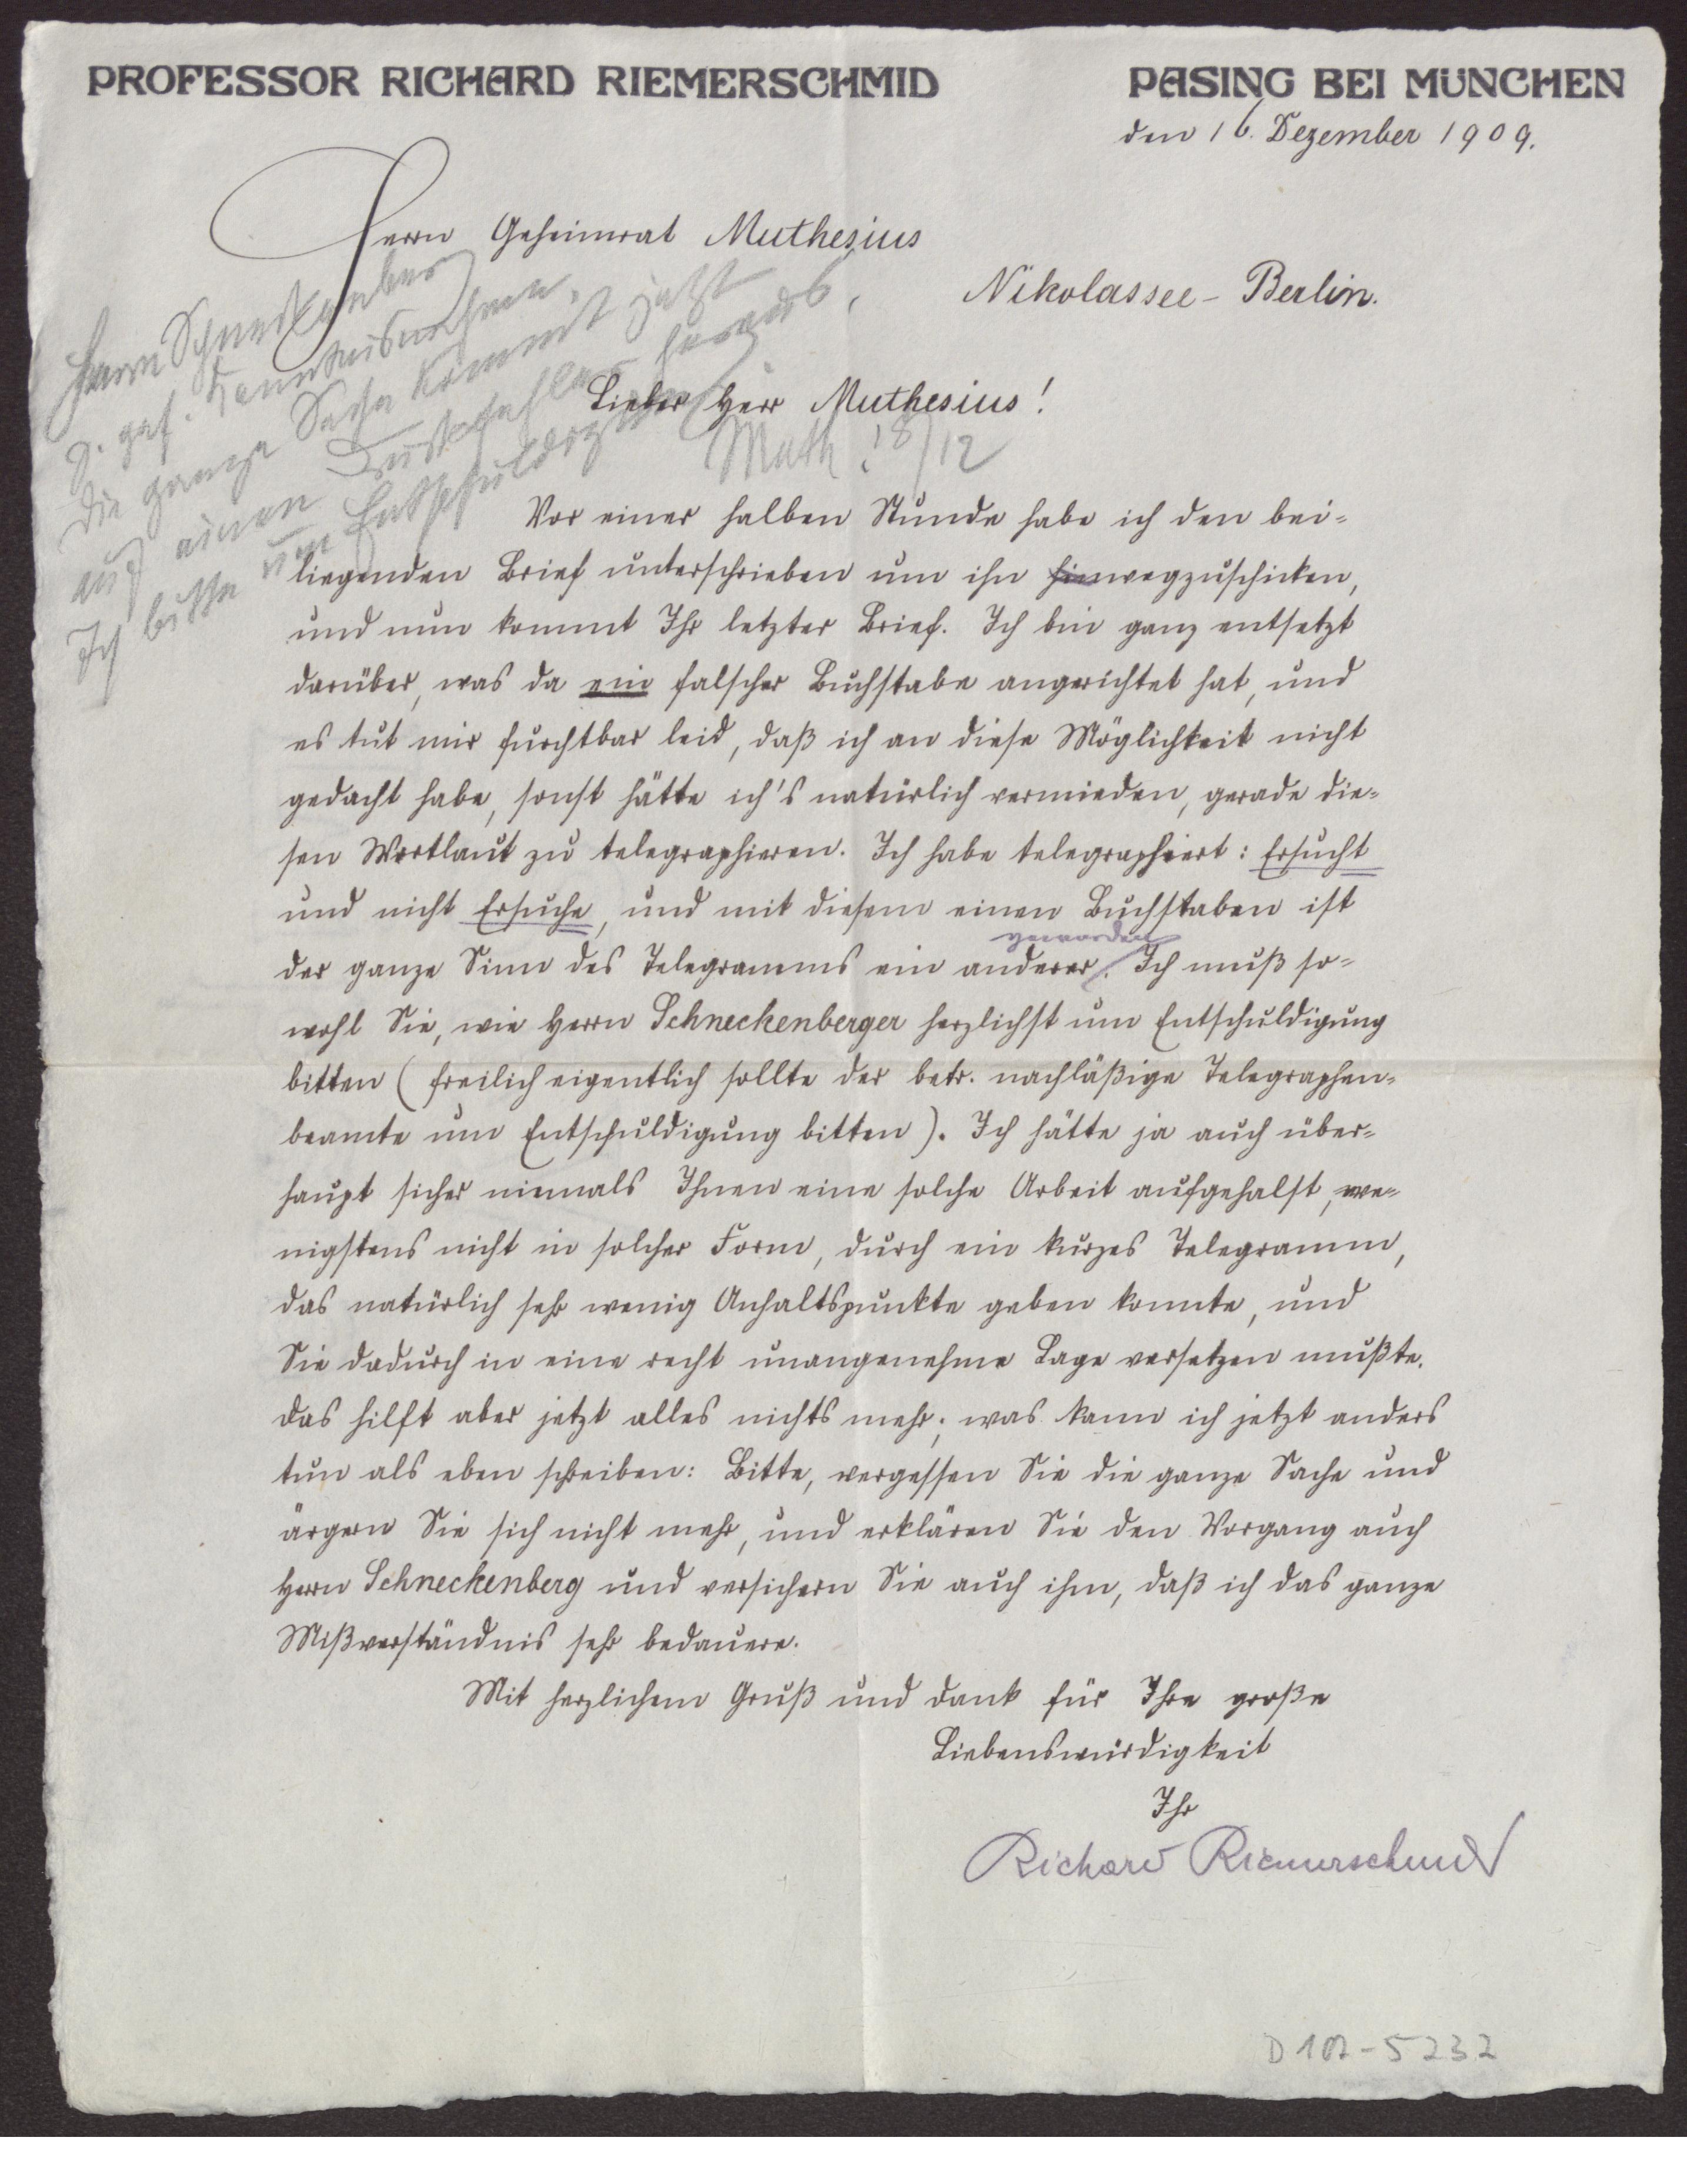 PROFESSOR RICHARD RIEMERSCHMID PASING BEI MÜNCHEN
den 16. Dezember 1909.
Herrn Geheimrat Muthesius
Nikolassee-Berlin.
Herrn Schneckenberg
z. gef. Kenntnisnahme.
Die ganze Sache kommt jetzt
auf einen Druckfehler heraus,
Ich bitte um Entschuldigung
Muth. 18/12
Lieber Herr Muthesius!
Vor einer halben Stunde habe ich den bei-
liegenden Brief unterschrieben um ihn hinwegzuschicken,
und nun kommt Ihr letzter Brief. Ich bin ganz entsetzt
darüber, was da ein falscher Buchstabe angerichtet hat, und
es tut mir furchtbar leid, daß ich an diese Möglichkeit nicht
gedacht habe, sonst hätte ich's natürlich vermieden, gerade die-
sen Wortlaut zu telegraphieren. Ich habe telegraphiert: Ersucht
und nicht Ersuche, und mit diesem einen Buchstaben ist
der ganze Sinn des Telegramms ein anderer geworden. Ich muß so-
wohl Sie, wie Herrn Schneckenberger herzlichst um Entschuldigung
bitten (freilich eigentlich sollte der betr. nachläßige Telegraphen-
beamte um Entschuldigung bitten). Ich hätte ja auch über-
haupt sicher niemals Ihnen eine solche Arbeit aufgehalst, we-
nigstens nicht in solcher Form, durch ein kurzes Telegramm,
das natürlich sehr wenig Anhaltspunkte geben konnte, und
Sie dadurch in eine recht unangenehme Lage versetzen mußte.
Das hilft aber jetzt alles nichts mehr; was kann ich jetzt anders
tun als eben schreiben: Bitte, vergessen Sie die ganze Sache und
ärgern Sie sich nicht mehr, und erklären Sie den Vorgang auch
Herrn Schneckenberg und versichern Sie auch ihm, daß ich das ganze
Mißverständnis sehr bedauere.
Mit herzlichem Gruß und Dank für Ihre große
Liebenswürdigkeit
Ihr
Richard Riemerschmid
D 102-5232